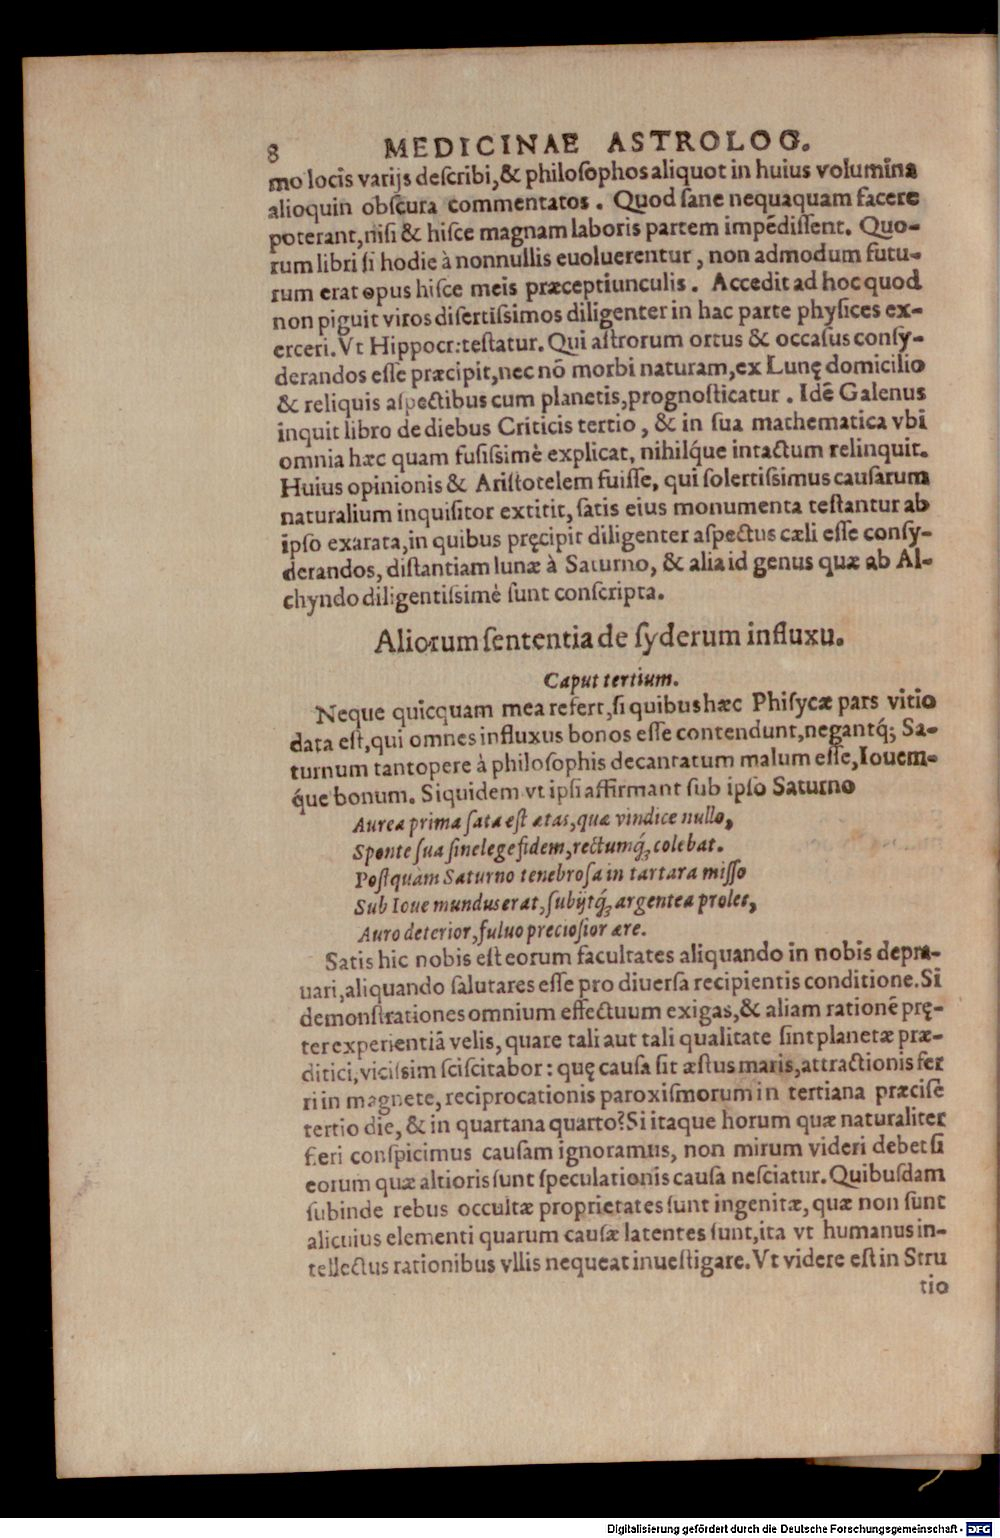 8 MEDICINAE ASTROLOG.
mo locis varijs describi,& philosophos aliquot in huius volumina
alioquin obscura commentatos. Quod sane nequaquam facere
poterant,nisi & hisce magnam laboris partem impēdissent. Quo-
rum libri si hodie à nonnullis euoluerentur, non admodum futu-
rum erat opus hisce meis præceptiunculis. Accedit ad hoc quod
non piguit viros disertissimos diligenter in hac parte physices ex-
erceri. Vt Hippocr: testatur. Qui astrorum ortus & occasus consy-
derandos esse præcipit, nec nō morbi naturam, ex Lunę domicilio
& reliquis aspectibus cum planetis, prognosticatur. Idē Galenus
inquit libro de diebus Criticis tertio, & in sua mathematica vbi
omnia hæc quam fusissimè explicat, nihilq́ue intactum relinquit.
Huius opinionis & Aristotelem fuisse, qui solertissimus causarum
naturalium inquisitor extitit, satis eius monumenta testantur ab
ipso exarata, in quibus pręcipit diligenter aspectus cæli esse consy-
derandos, distantiam lunæ à Saturno, & alia id genus quæ ab Al-
chyndo diligentissimè sunt conscripta.
Aliorum sententia de syderum influxu.
Caput tertium.
Neque quicquam mea refert, si quibus hæc Phisycæ pars vitio
data est, qui omnes influxus bonos esse contendunt, negantq́; Sa-
turnum tantopere à philosophis decantatum malum esse, Iouem-
q́ue bonum. Siquidem vt ipsi affirmant sub ipso Saturno
Aurea prima sata est ætas, quæ vindice nullo,
Sponte sua sine lege fidem, rectumq́; colebat.
Postquam Saturno tenebrosa in tartara misso
Sub Ioue mundus erat, subijtq́; argentea proles,
Auro deterior, fuluo preciosior ære.
Satis hic nobis est eorum facultates aliquando in nobis depra-
uari, aliquando salutares esse pro diuersa recipientis conditione. Si
demonstrationes omnium effectuum exigas, & aliam rationē prę-
ter experientiā velis, quare tali aut tali qualitate sint planetæ præ-
ditici, vicissim sciscitabor: quę causa sit æstus maris, attractionis fer
ri in magnete, reciprocationis paroxismorum in tertiana præcise
tertio die, & in quartana quarto? Si itaque horum quæ naturaliter
fieri conspicimus causam ignoramus, non mirum videri debet si
eorum quæ altioris sunt speculationis causa nesciatur. Quibusdam
subinde rebus occultæ proprietates sunt ingenitæ, quæ non sunt
alicuius elementi quarum causæ latentes sunt, ita vt humanus in-
tellectus rationibus vllis nequeat inuestigare. Vt videre est in Stru
tio
Digitalisierung gefördert durch die Deutsche Forschungsgemeinschaft - DFG